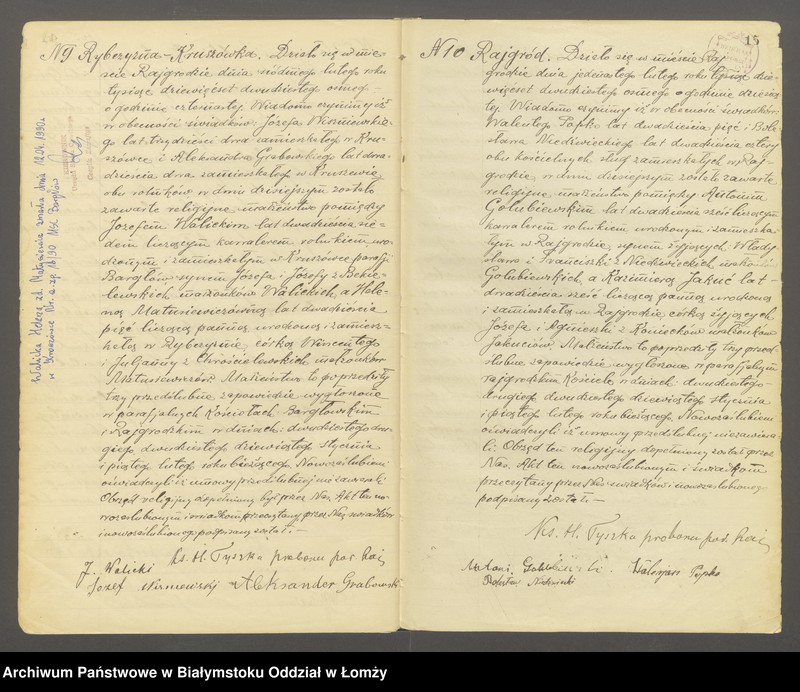 N 9 Rybczyzna-Kruszówka. Działo się w mie-
ście Rajgrodzie dnia siódmego lutego roku
tysiąc dziewięćset dwudziestego ósmego
o godzinie czternastej. Wiadomo czynimy iż
w obecności świadków: Józefa Wiśniewskie-
go lat trzydzieści dwa zamieszkałego w Kru-
szówce i Aleksandra Grabowskiego lat dwa-
dzieścia dwa zamieszkałego w Kruszewie
obu rolników w dniu dzisiejszym zostało
zawarte religijne małżeństwo pomiędzy
Józefem Walickim lat dwadzieścia sie-
dem liczącym kawalerem rolnikiem uro-
dzonym i zamieszkałym w Kruszówce parafji
Bargłów synem Józefa i Józefy z
małżonków Walickich, a Hele-
ną Matusiewiczówną lat dwadzieścia
pięć liczącą panną, urodzoną i zamiesz-
kałą w Rybczyznie córką Wincentego
i Juljanny z Chrościelewskich małżonków
Matusiewiczów. Małżeństwo to poprzedziły
trzy przedślubne zapowiedzie wygłoszone
w parafjalnych Kościołach Bargłowskim
i Rajgrodzkim w dniach: dwudziestego dru-
giego, dwudziestego dziewiątego stycznia
i piątego lutego roku bieżącego. Nowozaślubieni
oświadczyli iż umowy przedślubnej nie zawarli.
Obrzęd religijny dopełniony był przez Nas. Akt ten no-
wozaślubionym i świadkom przeczytany, przez Nas, świadków
i nowozaślubionego podpisany został. —
Ks. H. Tyszka proboszcz par. Raj
J. Walicki
Józef Wiśniewski Aleksander Grabowski
Walicka Helena zd. Matusiewicz zmarła dnia 12.04.1990r.
USC Bargłów
15
N 10 Rajgród. Działo się w mieście Raj-
grodzie dnia jedenastego lutego roku tysiąc dzie-
więćset dwudziestego ósmego o godzinie dziesią-
tej. Wiadomo czynimy iż w obecności świadków:
Walentego Papko lat dwadzieścia pięć i Bole-
sława Niedźwieckiego lat dwadzieścia cztery
obu kościelnych sług zamieszkałych w Raj-
grodzie, w dniu dzisiejszym zostało zawarte
religijne małżeństwo pomiędzy Antonim
Gołubiewskim lat dwadzieścia sześć liczącym
kawalerem rolnikiem urodzonym i zamieszka-
łym w Rajgrodzie, synem żyjących Włady-
sława i Franciszki z Niedźwieckich małżonków
Gołubiewskich, a Kazimierą Jakuć lat
dwadzieścia sześć liczącą panną urodzoną
i zamieszkałą w Rajgrodzie, córką żyjących
Józefa i Agnieszki z Koniecków małżonków
Jakuciów. Małżeństwo to poprzedziły trzy przed-
ślubne zapowiedzie wygłoszone w parafjalnym
rajgrodzkim Kościele w dniach: dwudziestego
drugiego, dwudziestego dziewiątego stycznia
i piątego lutego roku bieżącego. Nowozaślubieni
oświadczyli iż umowy przedślubnej nie zawar-
li. Obrzęd ten religijny dopełniony został przez
Nas. Akt ten nowozaślubionym i świadkom
przeczytany przez Nas świadków i nowozaślubionego
podpisany został. —
Ks. H. Tyszka proboszcz par. Raj
Antoni
Walerjan Papko
Bolesław Niedźwiecki
Archiwum Państwowe w Białymstoku Oddział w Łomży